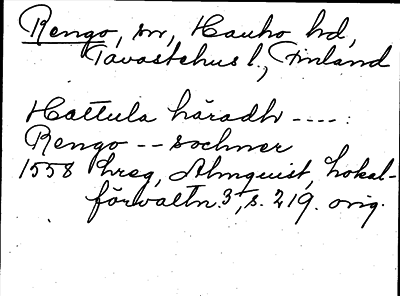 Rengo, sn, Hauho hd,
Tavastehus l., Finland
Hattula häradh ----:
Rengo -- sochner
1558 hreg, Almquist, Lokal-
förvaltn. 3, s. 219. orig.